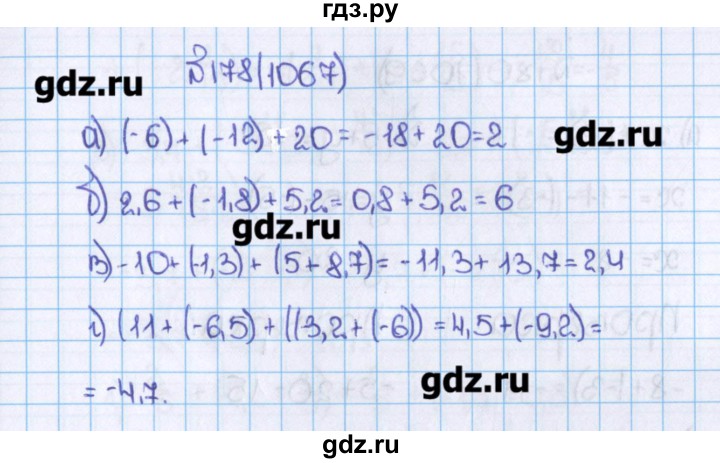 гдз.ру
№178(1067)
gdz.ru
а) (-6) + (-12) + 20 = -18 + 20 = 2
gdz.ru
б) 2,6 + (-1,8) + 5,2 = 0,8 + 5,2 = 6
gdz.ru
в) -10 + (-1,3) + (5 + 8,7) = -11,3 + 13,7 = 2,4
г) (11 + (-6,5) + ((-3,2 + (-6)) = 4,5 + (-9,2) =
= -4,7.
gdz.ru
gdz.ru